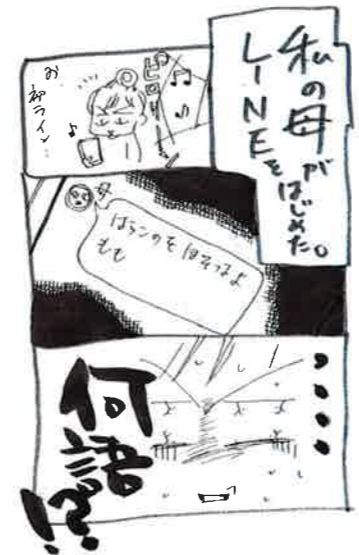 私の母が
LINEをはじめた。
ピロリーン
お
初ライン…
母
はらこのを ほそつるよ
もも
何語!?